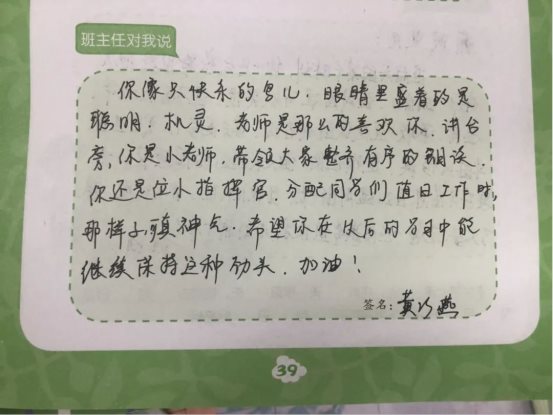 班主任对我说
你像只快乐的鸟儿，眼睛里盛着的是
聪明、机灵。老师是那么的喜欢你。讲台
旁，你是小老师，带领大家整齐有序的朗读。
你还是位小指挥官，分配同学们值日工作时，
那样子颇神气。希望你在以后的学习中能
继续保持这种劲头，加油！
签名：黄 燕
39